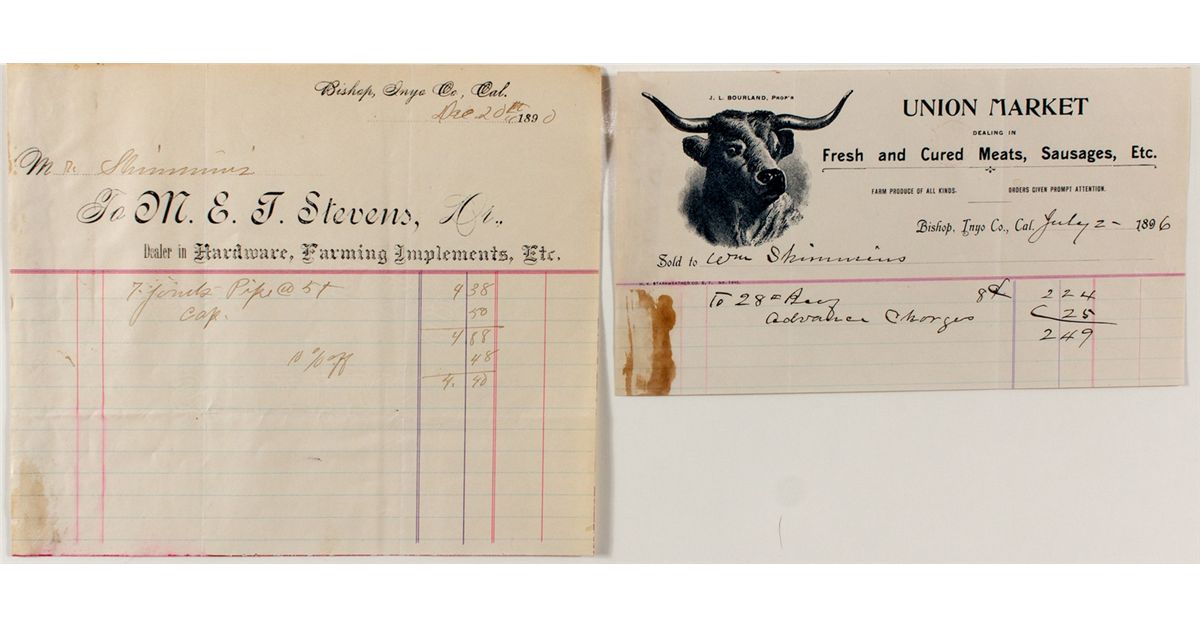 Bishop, Inyo Co., Cal.
Dec 20th 1890
Mr. Skimmins
To M. E. T. Stevens, Dr.,
Dealer in Hardware, Farming Implements, Etc.
7 joints Pipe @ 5 4 38
Cap. 50
4 88
10 % off 48
4. 40
J. L. BOURLAND, PROP'R
UNION MARKET
DEALING IN
Fresh and Cured Meats, Sausages, Etc.
FARM PRODUCE OF ALL KINDS. ORDERS GIVEN PROMPT ATTENTION.
Bishop, Inyo Co., Cal. July 2 - 1896
Sold to Wm Skimmins
To 28# 8¢ 2 24
Advance Charges 25
2 49